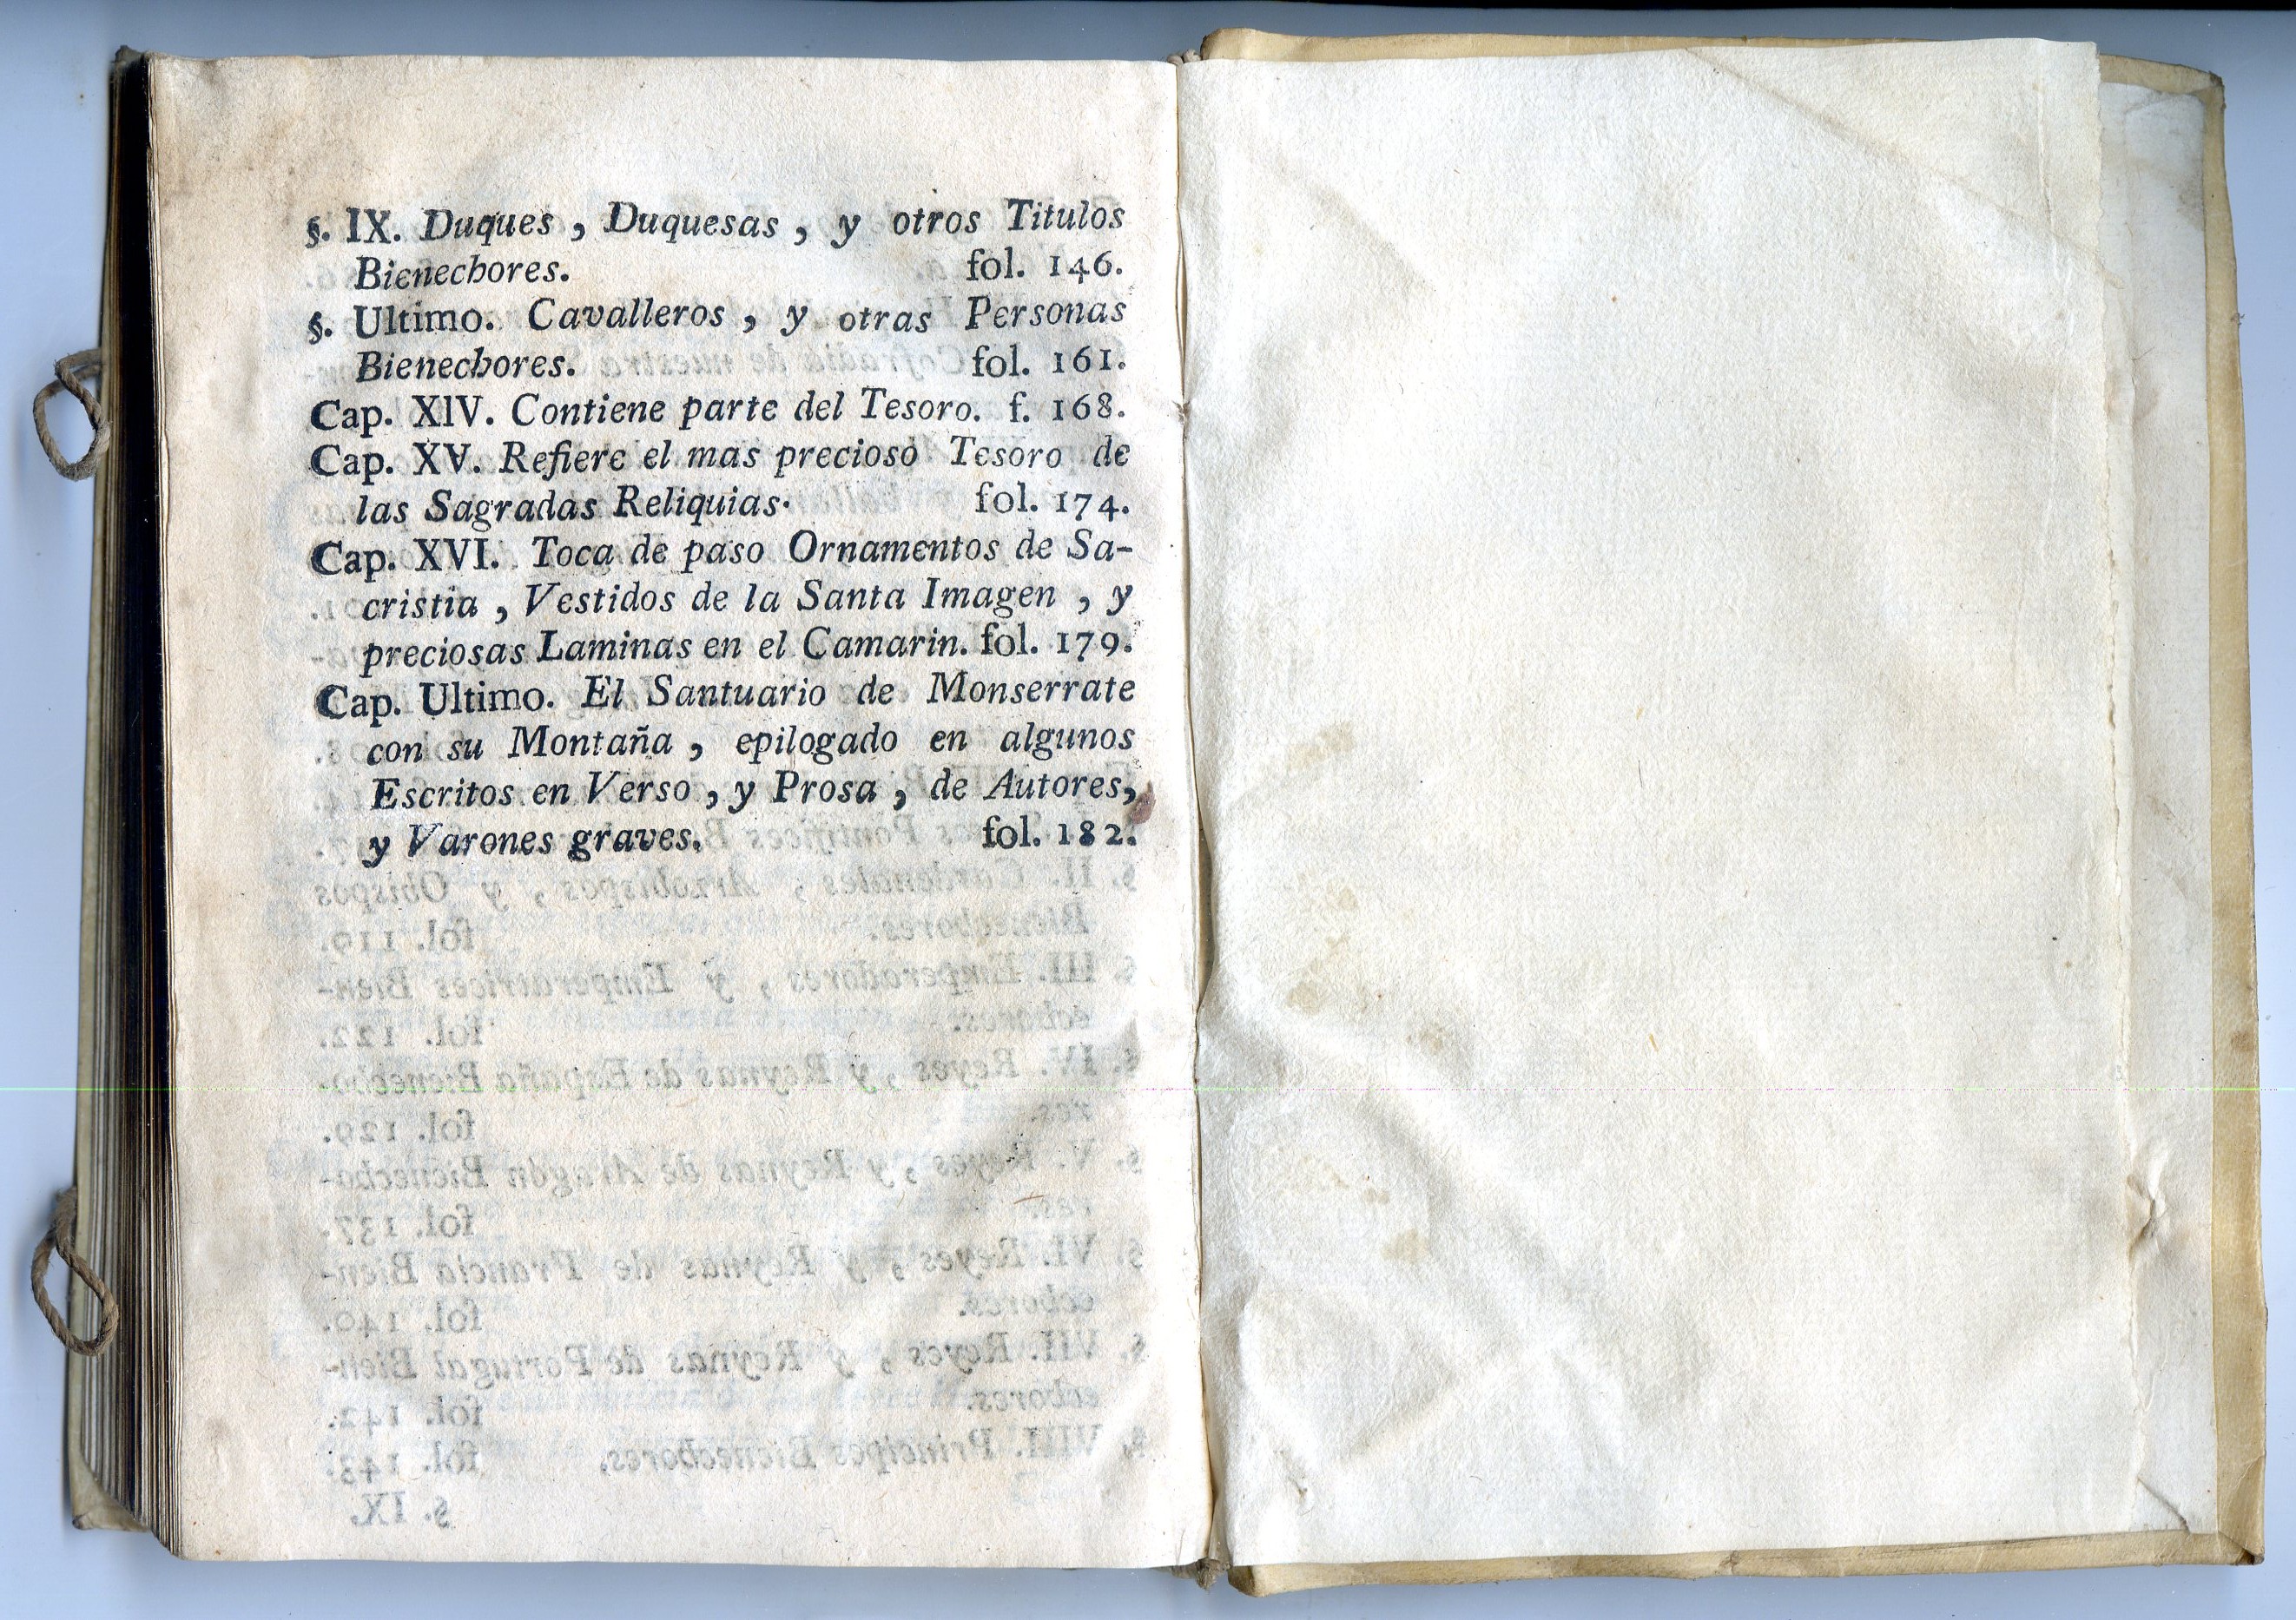 §. IX. Duques, Duquesas, y otros Titulos
Bienechores. fol. 146.
§. Ultimo. Cavalleros, y otras Personas
Bienechores. fol. 161.
Cap. XIV. Contiene parte del Tesoro. f. 168.
Cap. XV. Refiere el mas precioso Tesoro de
las Sagradas Reliquias. fol. 174.
Cap. XVI. Toca de paso Ornamentos de Sa-
cristia, Vestidos de la Santa Imagen, y
preciosas Laminas en el Camarin. fol. 179.
Cap. Ultimo. El Santuario de Monserrate
con su Montaña, epilogado en algunos
Escritos en Verso, y Prosa, de Autores,
y Varones graves. fol. 182.